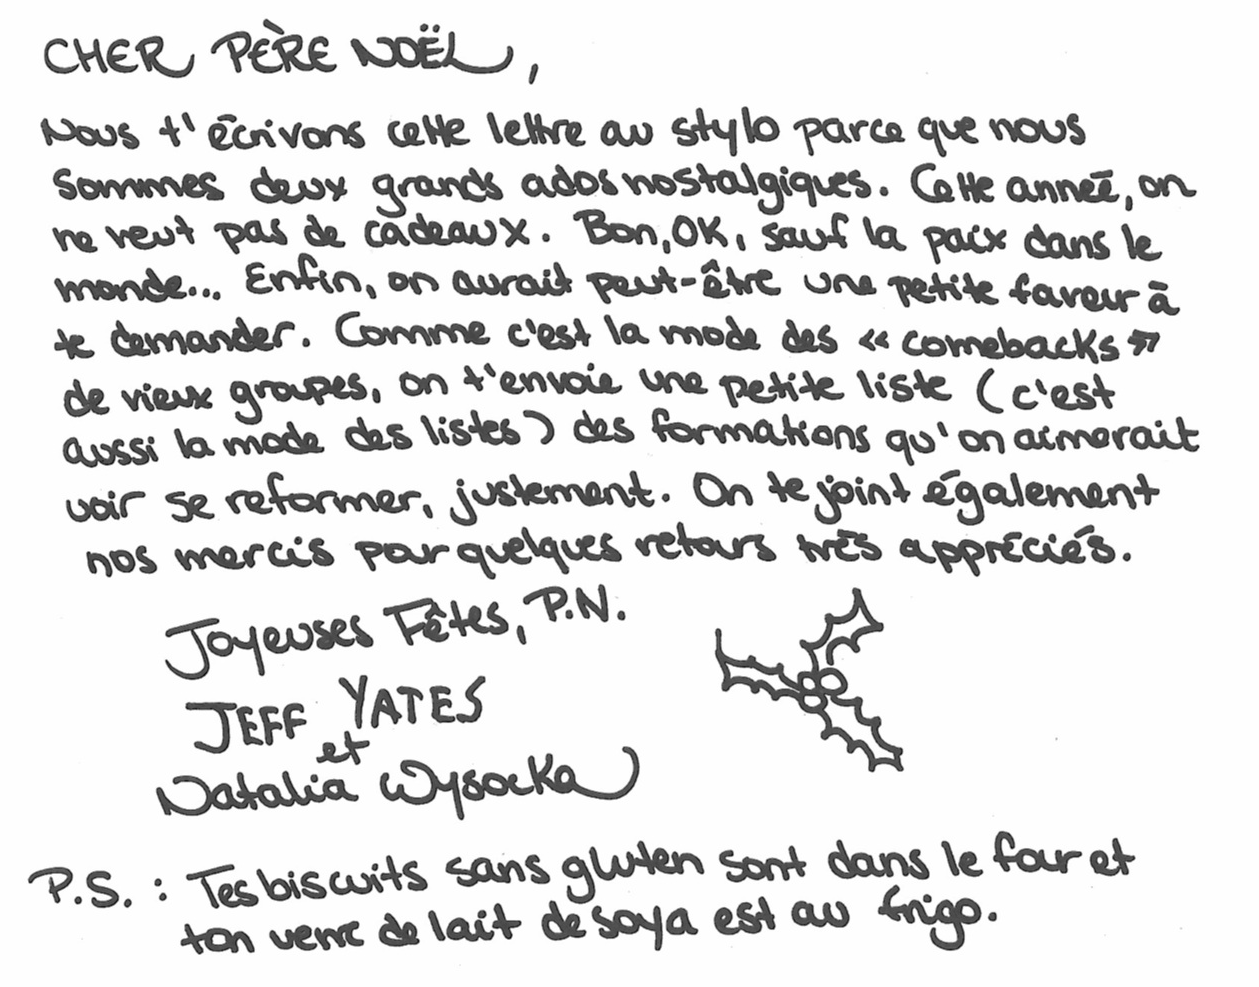 CHER PÈRE NOËL,
Nous t'écrivons cette lettre au stylo parce que nous
sommes deux grands ados nostalgiques. Cette année, on
ne veut pas de cadeaux. Bon, OK, sauf la paix dans le
monde... Enfin, on aurait peut-être une petite faveur à
te demander. Comme c'est la mode des « comebacks »
de vieux groupes, on t'envoie une petite liste (c'est
aussi la mode des listes) des formations qu'on aimerait
voir se reformer, justement. On te joint également
nos mercis pour quelques retours très appréciés.
Joyeuses Fêtes, P.N.
JEFF YATES
et
Natalia Wysocka
P.S. : Tes biscuits sans gluten sont dans le four et
ton verre de lait de soya est au frigo.